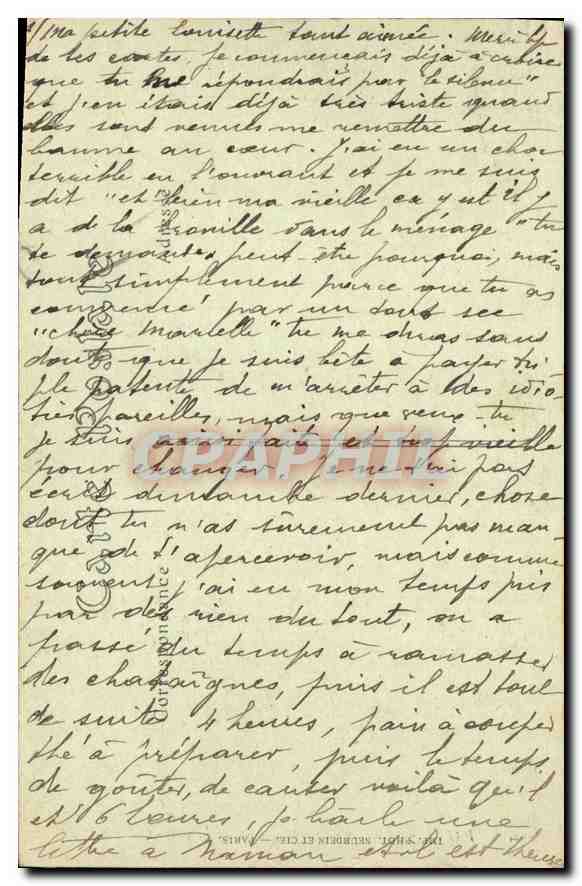 1/ Ma petite Louisette tant aimée. Merci bp
de tes cartes, je commençais déjà à croire
que tu me répondrais par "le silence"
et j'en étais déjà très triste quand
elles sont venues me remettre du
baume au cœur. J'ai eu un choc
terrible en l'ouvrant et je me suis
dit "eh bien ma vieille ça y est il y
a de la brouille dans le ménage" tu
te demandes peut-être pourquoi, mais
tout simplement parce que tu as
commencé par un tout sec
"chère Marcelle" tu me diras sans
doute que je suis bête à payer tri
ple patente de m'arrêter à des idio-
ties pareilles, mais que veux-tu
je suis ainsi faite et trop vieille
pour changer. Je ne t'ai pas
écrit dimanche dernier, chose
dont tu n'as sûrement pas man-
qué de t'apercevoir, mais comme
souvent j'ai eu mon temps pris
par des rien du tout, on a
passé du temps à ramasser
des chataignes, puis il est tout
de suite 4 heures, pain à couper
thé à préparer, puis le temps
de goûter, de causer voilà qu'il
est 6 heures, je bâcle une
lettre à Maman et il est l'heure
Carte Postale
Correspondance
Adresse
IMP. PHOT. NEURDEIN ET CIE. — PARIS.
CPAPHIL